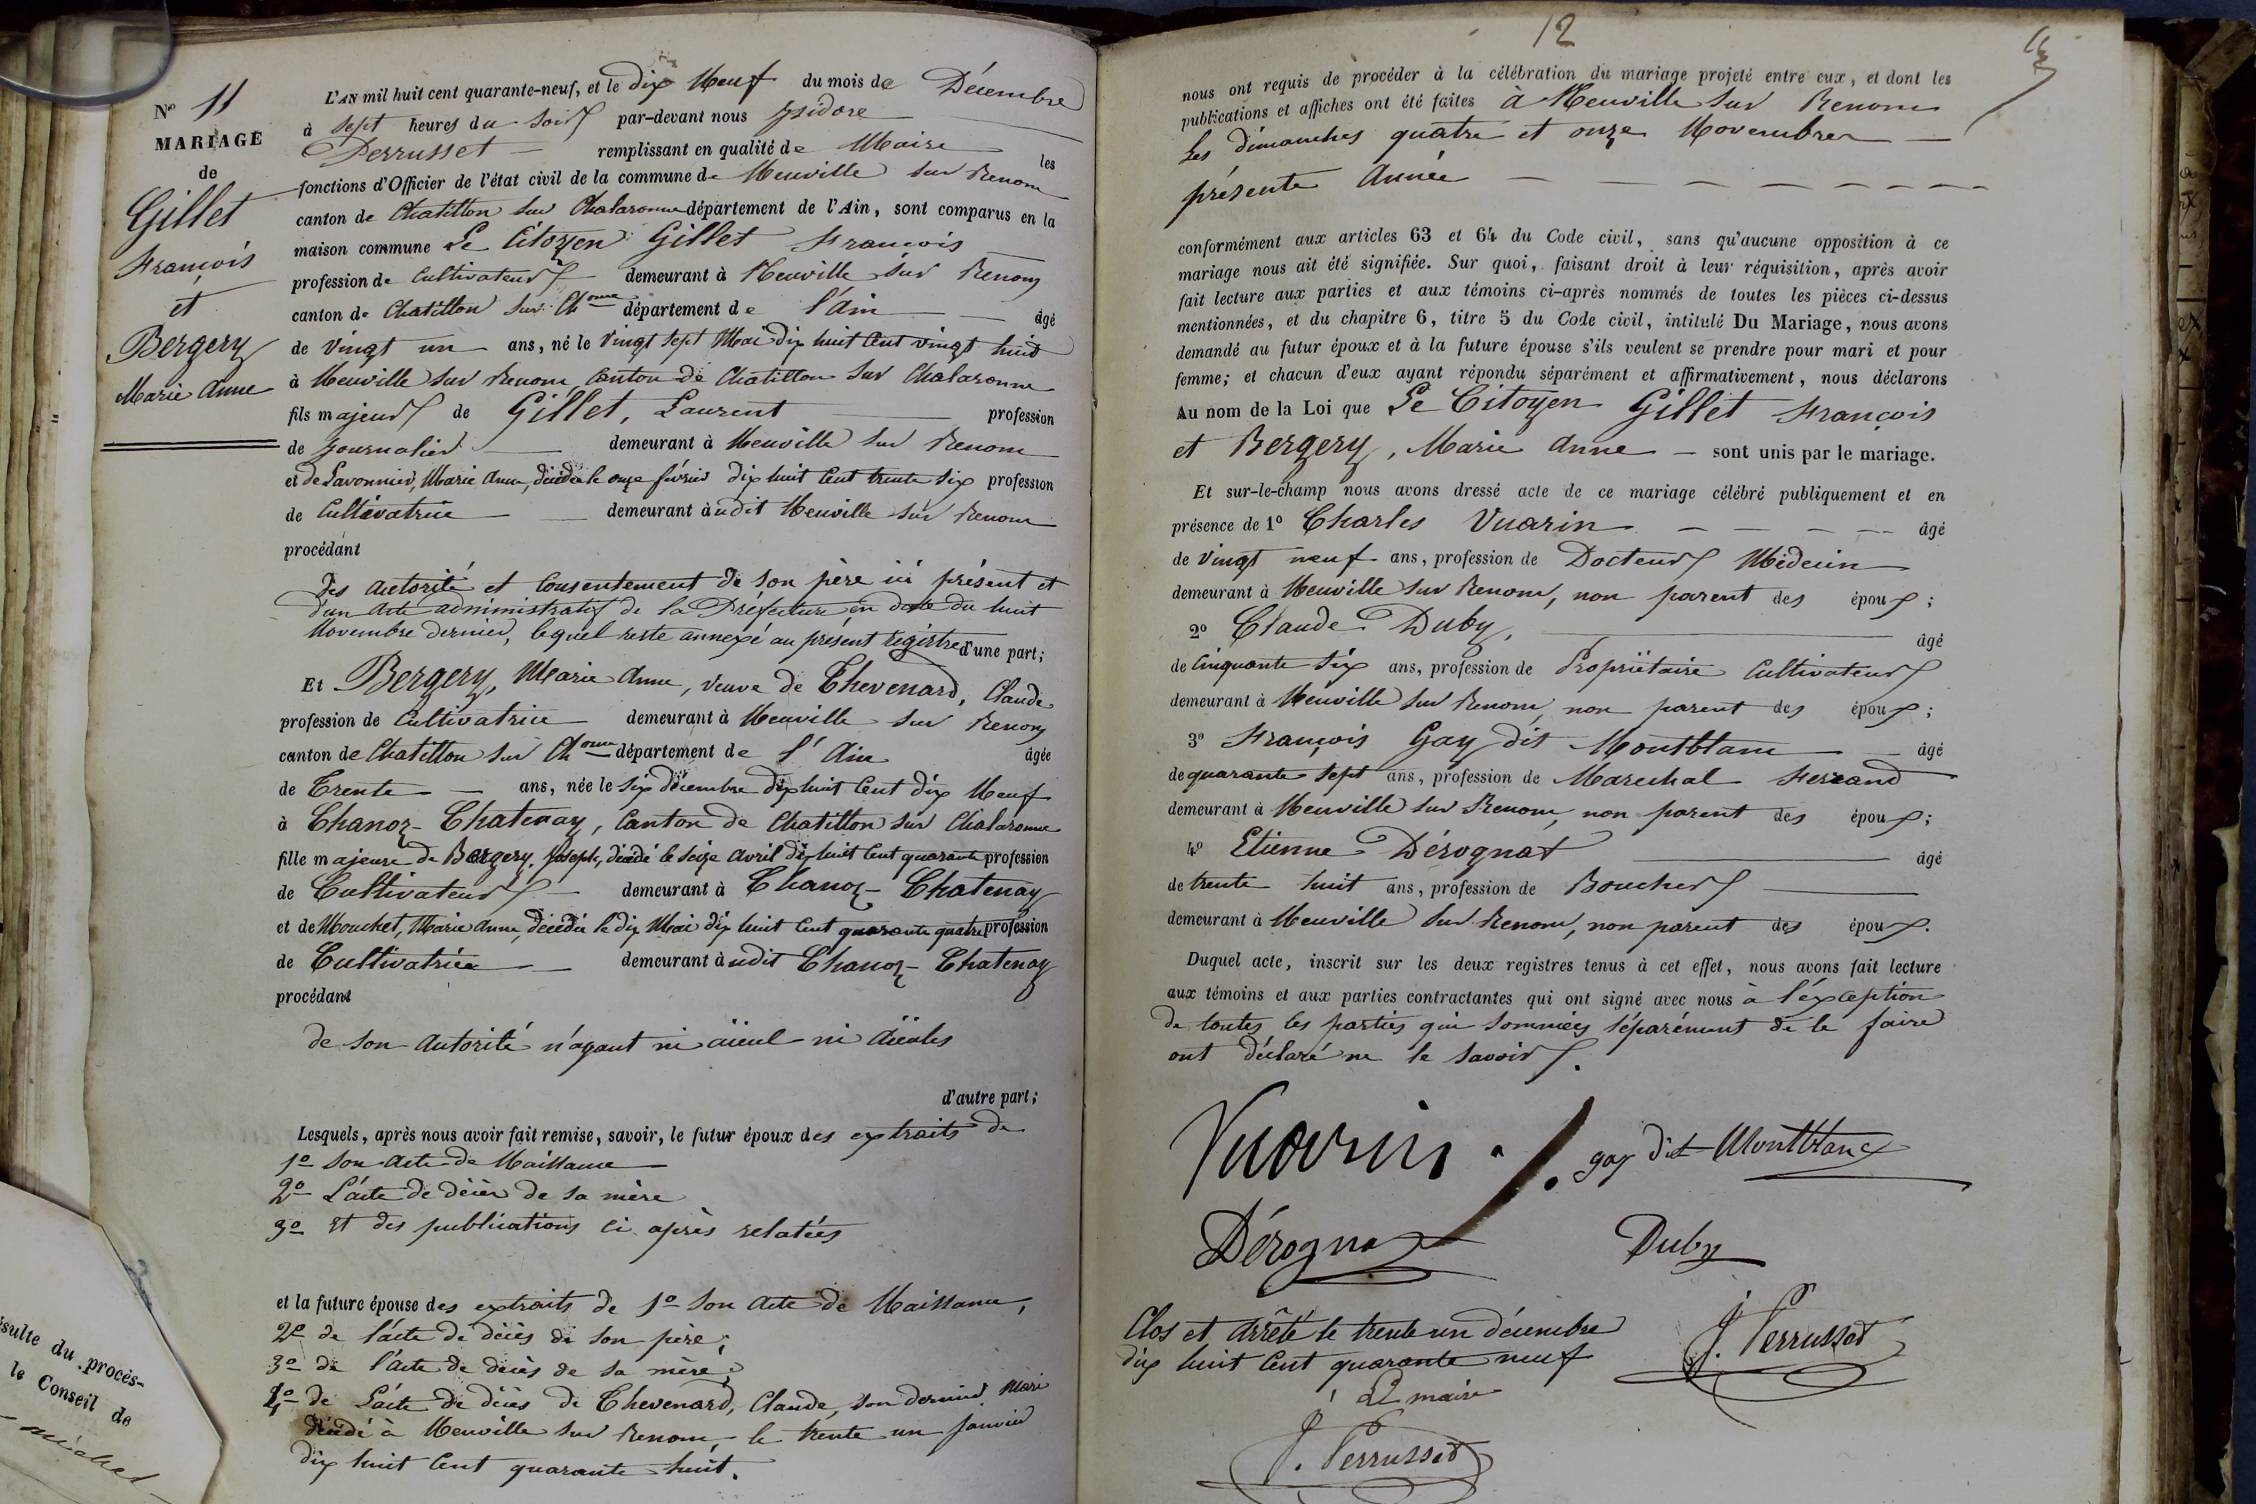 N° 11
MARIAGE
de
Gillet
François
et
Bergery
Marie Anne
L'AN mil huit cent quarante-neuf, et le dix Neuf du mois de Décembre
à sept heures du soir par-devant nous Isidore
Perrusset remplissant en qualité de Maire les
fonctions d'Officier de l'état civil de la commune de Neuville sur Renom
canton de Chatillon sur Chalaronne département de l'Ain, sont comparus en la
maison commune Le Citoyen Gillet François
profession de Cultivateur demeurant à Neuville sur Renom
canton de Chatillon sur Ch onne département de l'Ain âgé
de Vingt un ans, né le Vingt sept Mai dix huit Cent vingt huit
à Neuville sur Renom, Canton de Chatillon sur Chalaronne
fils majeur de Gillet, Laurent profession
de Journalier demeurant à Neuville sur Renom
et de Savonnier, Marie Anne, décédée le onze février dix huit Cent trente six profession
de Cultivatrice demeurant àudit Neuville sur Renom
procédant
des autorité et Consentement de son père ici présent et
d'un acte administratif de la Préfecture en date du huit
Novembre dernier, lequel reste annexé au présent registre d'une part;
Et Bergery, Marie Anne, veuve de Thevenard, Claude
profession de Cultivatrice demeurant à Neuville sur Renom
canton de Chatillon sur Ch onne département de l'Ain âgée
de Trente ans, née le six décembre dix huit Cent dix Neuf
à Chanoz-Chatenay, Canton de Chatillon sur Chalaronne
fille majeure de Bergery, Joseph, décédé le seize Avril dix huit Cent quarante profession
de Cultivateur demeurant à Chanoz-Chatenay
et de Mouchet, Marie Anne, décédée le dix Mai dix huit Cent quarante quatre profession
de Cultivatrice demeurant àudit Chanoz-Chatenay
procédant
de son autorité n'ayant ni aïeul ni aïeules
d'autre part;
Lesquels, après nous avoir fait remise, savoir, le futur époux des extraits de
1° son acte de Naissance
2° L'acte de décès de sa mère
3° et des publications ci après relatées
et la future épouse des extraits de 1° son acte de Naissance,
2° de l'acte de décès de son père;
3° de l'acte de décès de sa mère;
4° de L'acte de décès de Thevenard, Claude, son dernier Mari
décédé à Neuville sur Renom, le trente un Janvier
dix huit Cent quarante huit.
sulte du procès-
le Conseil de
Michel
12
nous ont requis de procéder à la célébration du mariage projeté entre eux, et dont les
publications et affiches ont été faites à Neuville sur Renom
Les dimanches quatre et onze Novembre
présente Année
conformément aux articles 63 et 64 du Code civil, sans qu'aucune opposition à ce
mariage nous ait été signifiée. Sur quoi, faisant droit à leur réquisition, après avoir
fait lecture aux parties et aux témoins ci-après nommés de toutes les pièces ci-dessus
mentionnées, et du chapitre 6, titre 5 du Code civil, intitulé Du Mariage, nous avons
demandé au futur époux et à la future épouse s'ils veulent se prendre pour mari et pour
femme; et chacun d'eux ayant répondu séparément et affirmativement, nous déclarons
Au nom de la Loi que Le Citoyen Gillet François
et Bergery, Marie Anne sont unis par le mariage.
Et sur-le-champ nous avons dressé acte de ce mariage célébré publiquement et en
présence de 1° Charles Vuarin âgé
de Vingt neuf ans, profession de Docteur Médecin
demeurant à Neuville sur Renom, non parent des époux;
2° Claude Duby, âgé
de Cinquante six ans, profession de Propriétaire Cultivateur
demeurant à Neuville sur Renom, non parent des époux;
3° François Gay dit Montblanc âgé
de quarante sept ans, profession de Marechal Ferrand
demeurant à Neuville sur Renom, non parent des époux;
4° Etienne Dérognat âgé
de trente huit ans, profession de Boucher
demeurant à Neuville sur Renom, non parent des époux.
Duquel acte, inscrit sur les deux registres tenus à cet effet, nous avons fait lecture
aux témoins et aux parties contractantes qui ont signé avec nous à l'éxception
de toutes les parties qui sommées séparément de le faire
ont déclaré ne le savoir.
Vuarin gay dit Montblanc
Dérognat Duby
Clos et arrêté le trente un décembre
dix huit Cent quarante neuf
Le maire
J. Perrusset
J. Perrusset